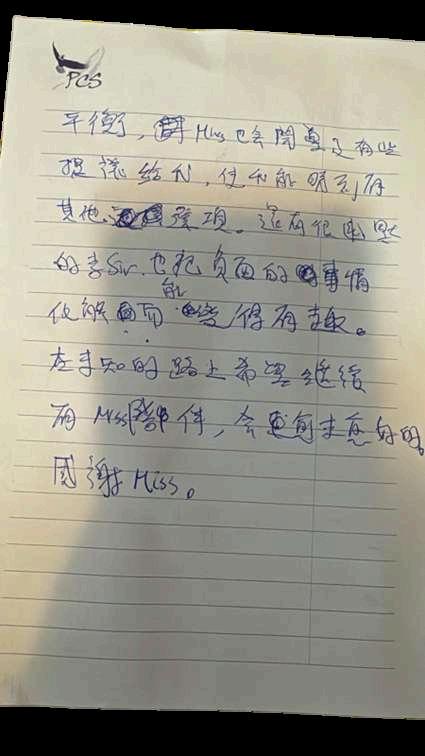 PCS
平衡，Miss也會閱有些
給我，使我能明到有
其他選項。還有很
的李Sir，也把負面的事情
化解 而能得有趣。
在未知的路上希望繼續
有Miss陪伴，會愈來愈好的。
感謝Miss。